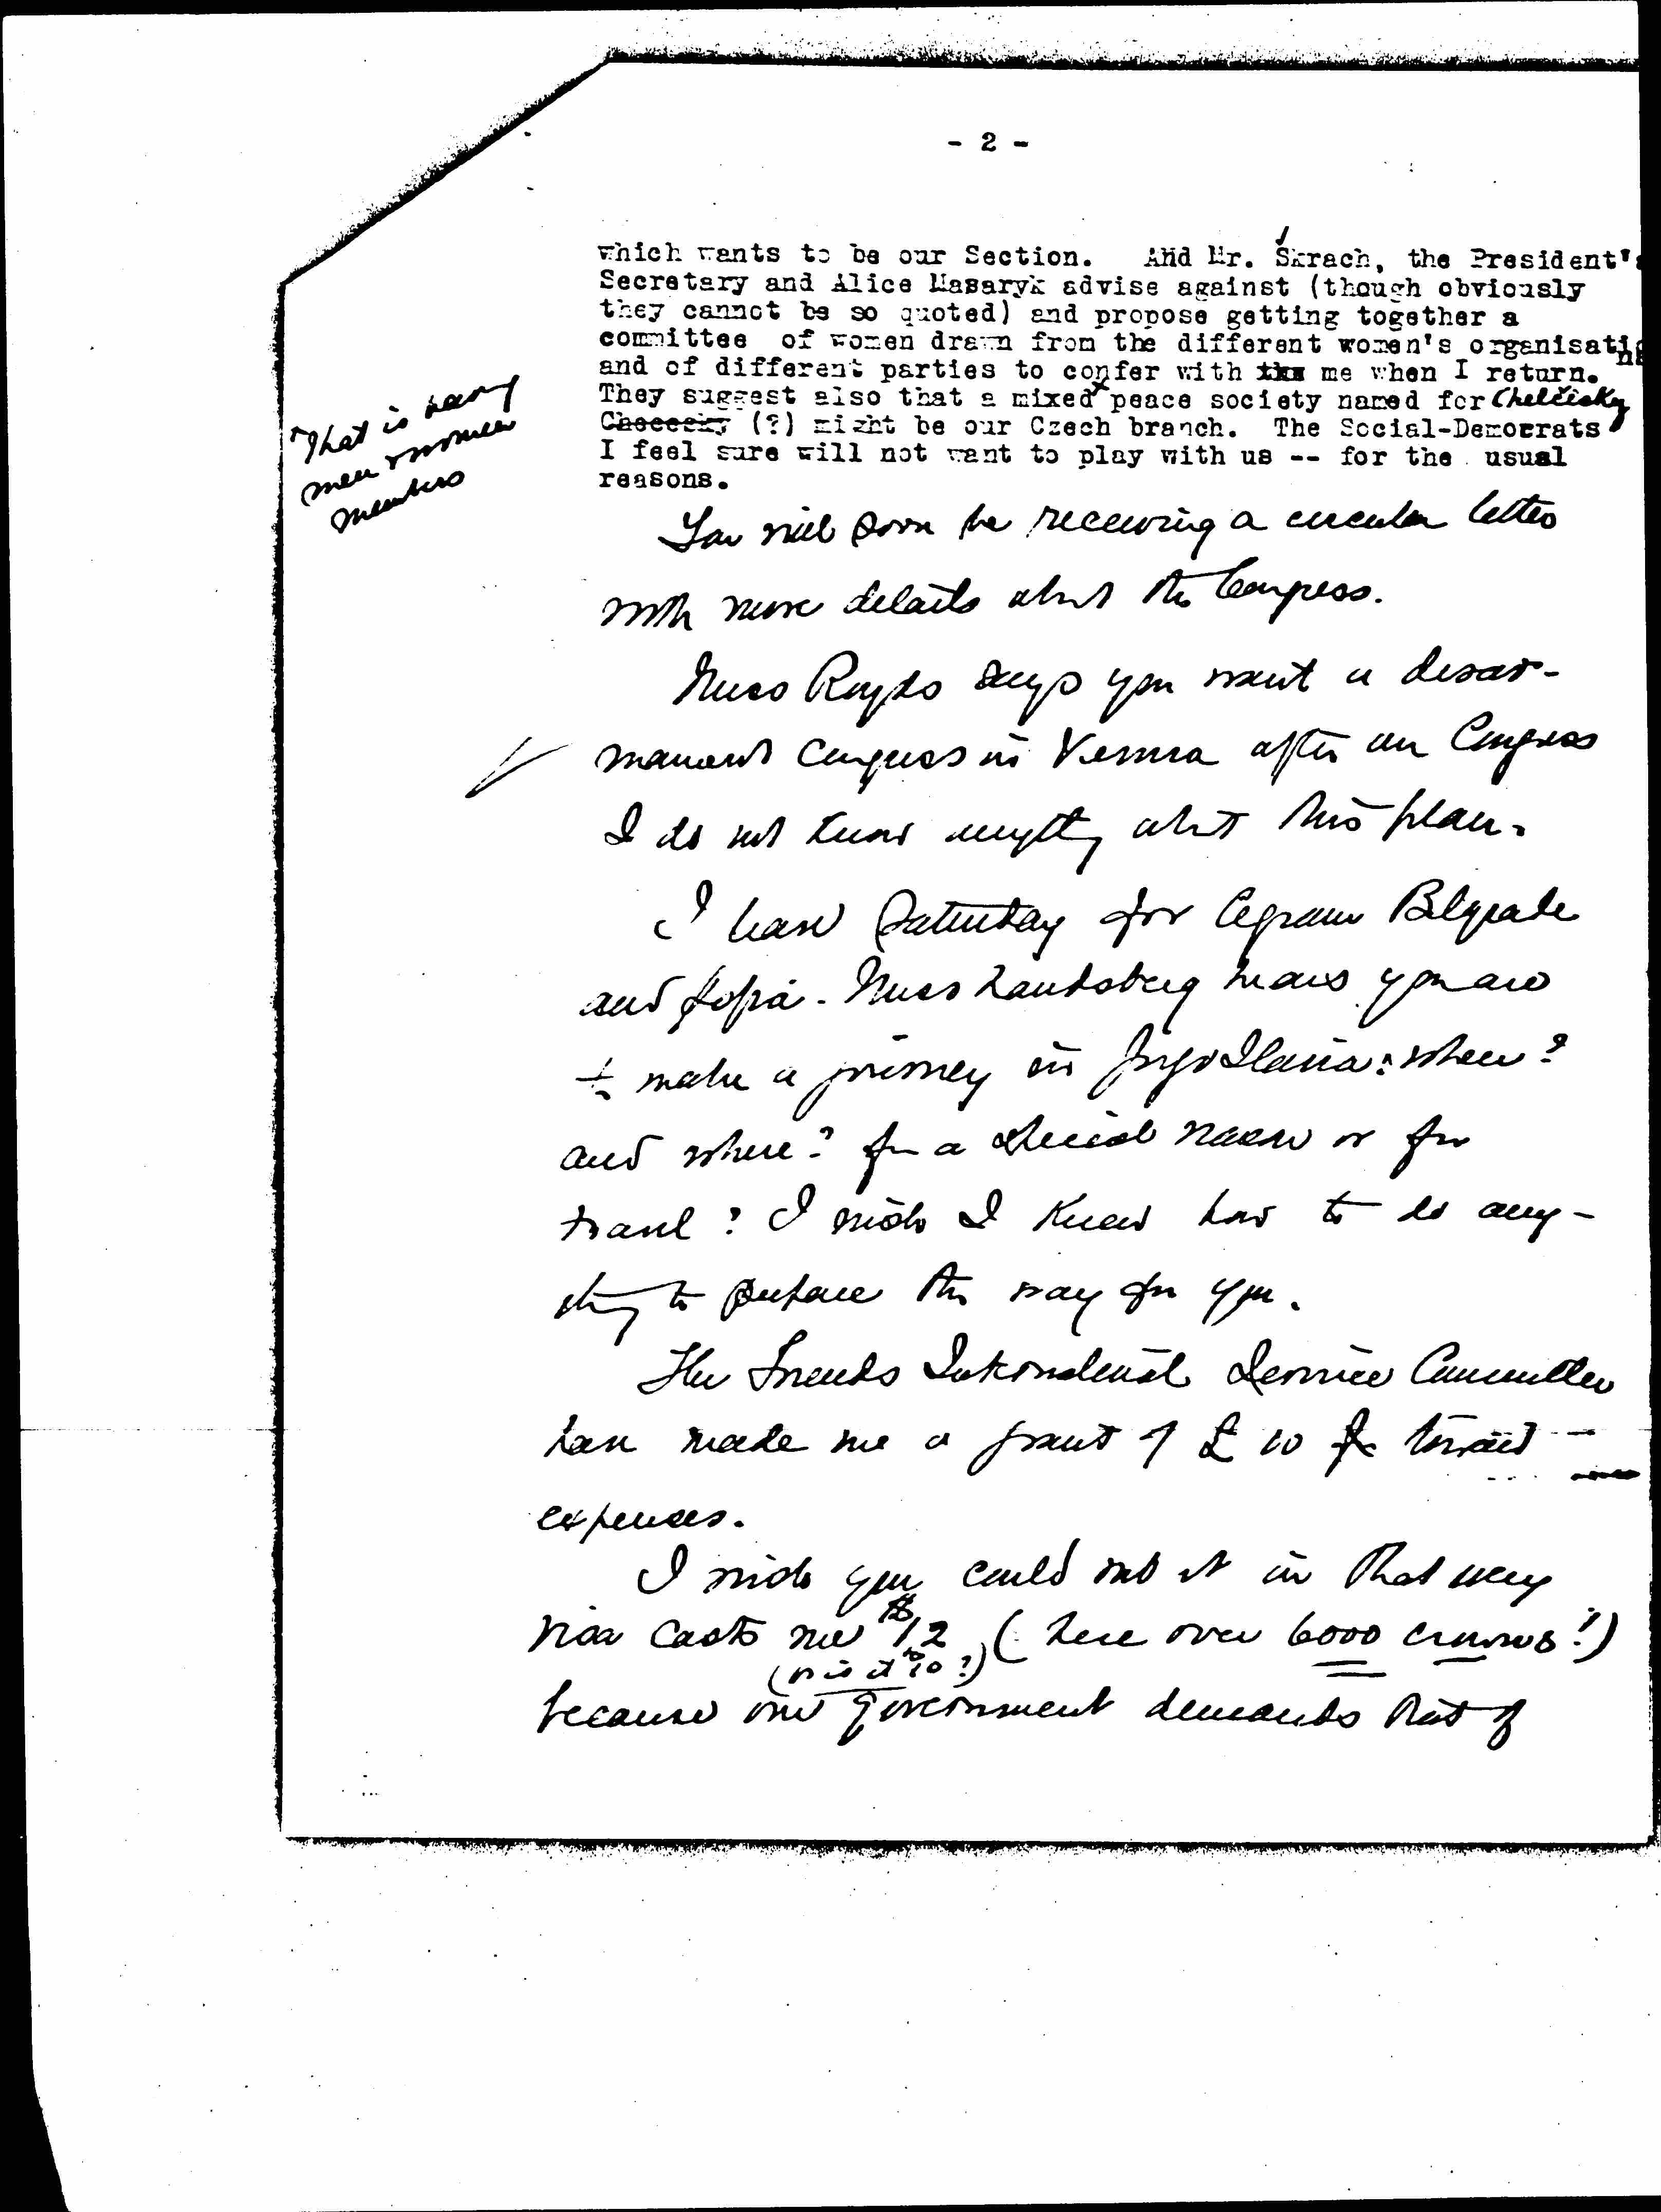 - 2 -
which wants to be our Section. And Mr. Škrach, the President's
Secretary and Alice Masaryk advise against (though obviously
they cannot be so quoted) and propose getting together a
committee of women drawn from the different women's organisatins
and of different parties to confer with me when I return.
They suggest also that a mixed x peace society named for Chelčický
(?) might be our Czech branch. The Social-Democrats
I feel sure will not want to play with us -- for the usual
reasons.
x That is having
men & women
members
You will soon be receiving a circular letter
with more details about the Congress.
Miss Royds says you want a disar-
mament congress in Vienna after our Congress
I do not know anything about this plan.
I leave Saturday for Agram Belgrade
and Sofia. Miss Landsberg hears you are
to make a journey in JugoSlavia: when?
and where? for a special reason or for
travel? I wish I knew how to do any-
thing to prepare the way for you.
The Friends International Service Committee
have made me a grant of £ 10 toward
expenses.
I wish you could not it in that way
visa costs me $12 (here over 6000 crowns!)
(or is it $10?)
because our government demands that of